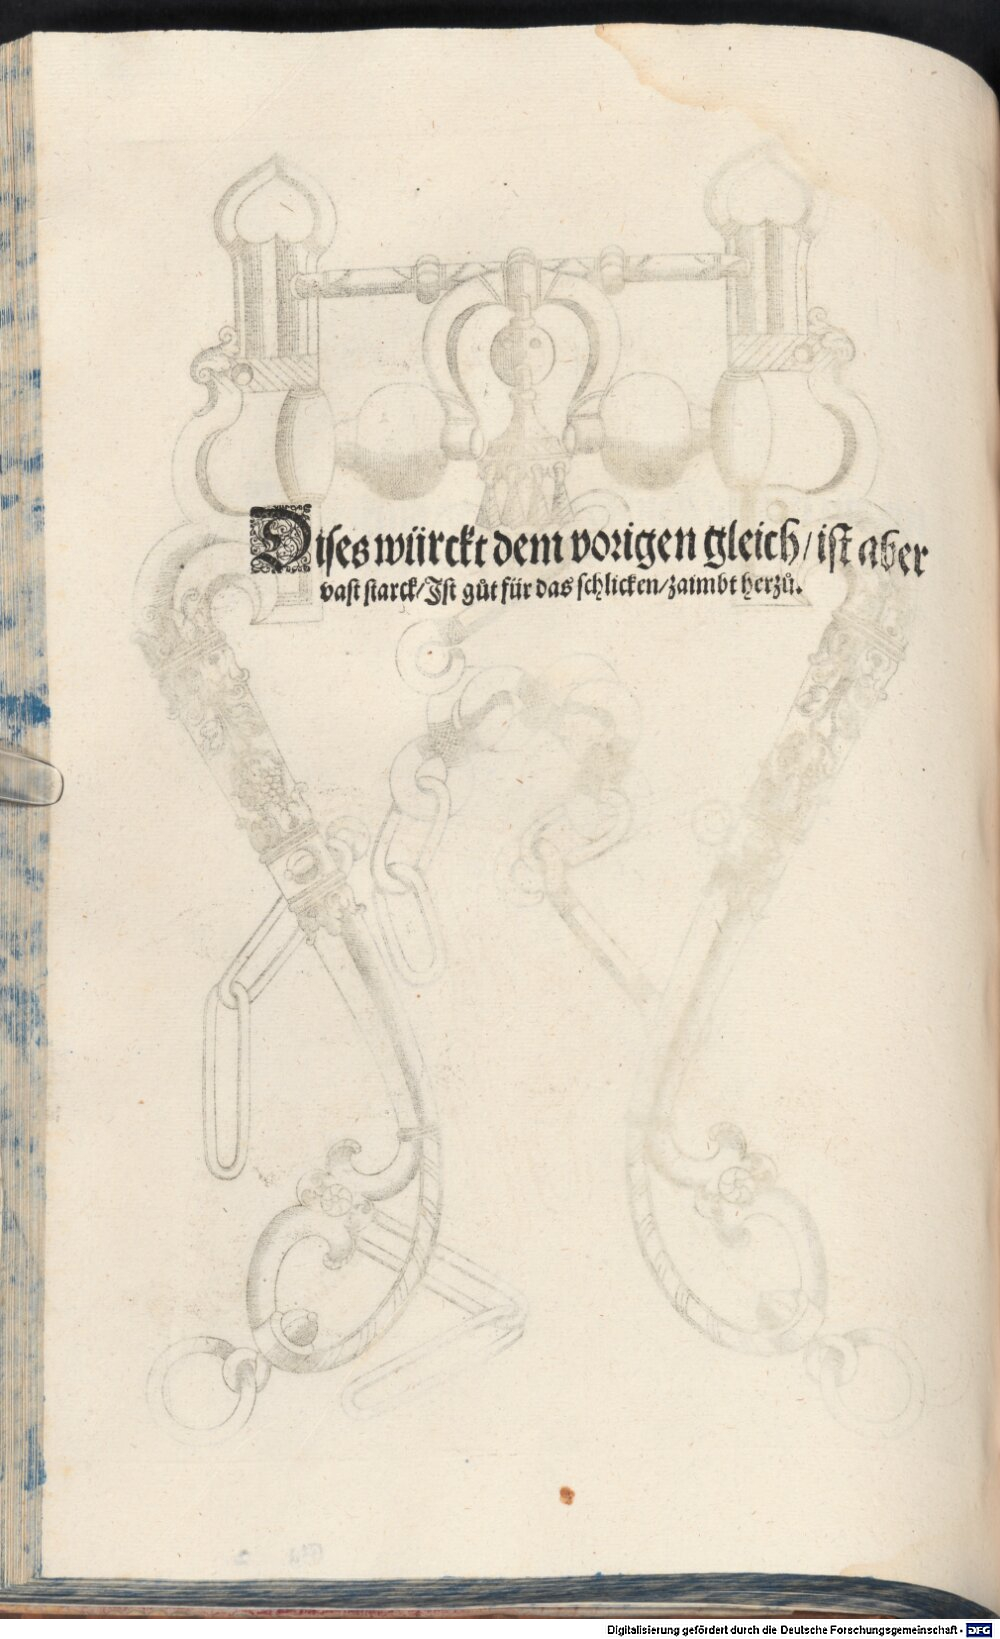 Dises würckt dem vorigen gleich/ ist aber
vast starck/ Ist gůt für das schlicken/ zaimbt herzů.
Digitalisierung gefördert durch die Deutsche Forschungsgemeinschaft - DFG